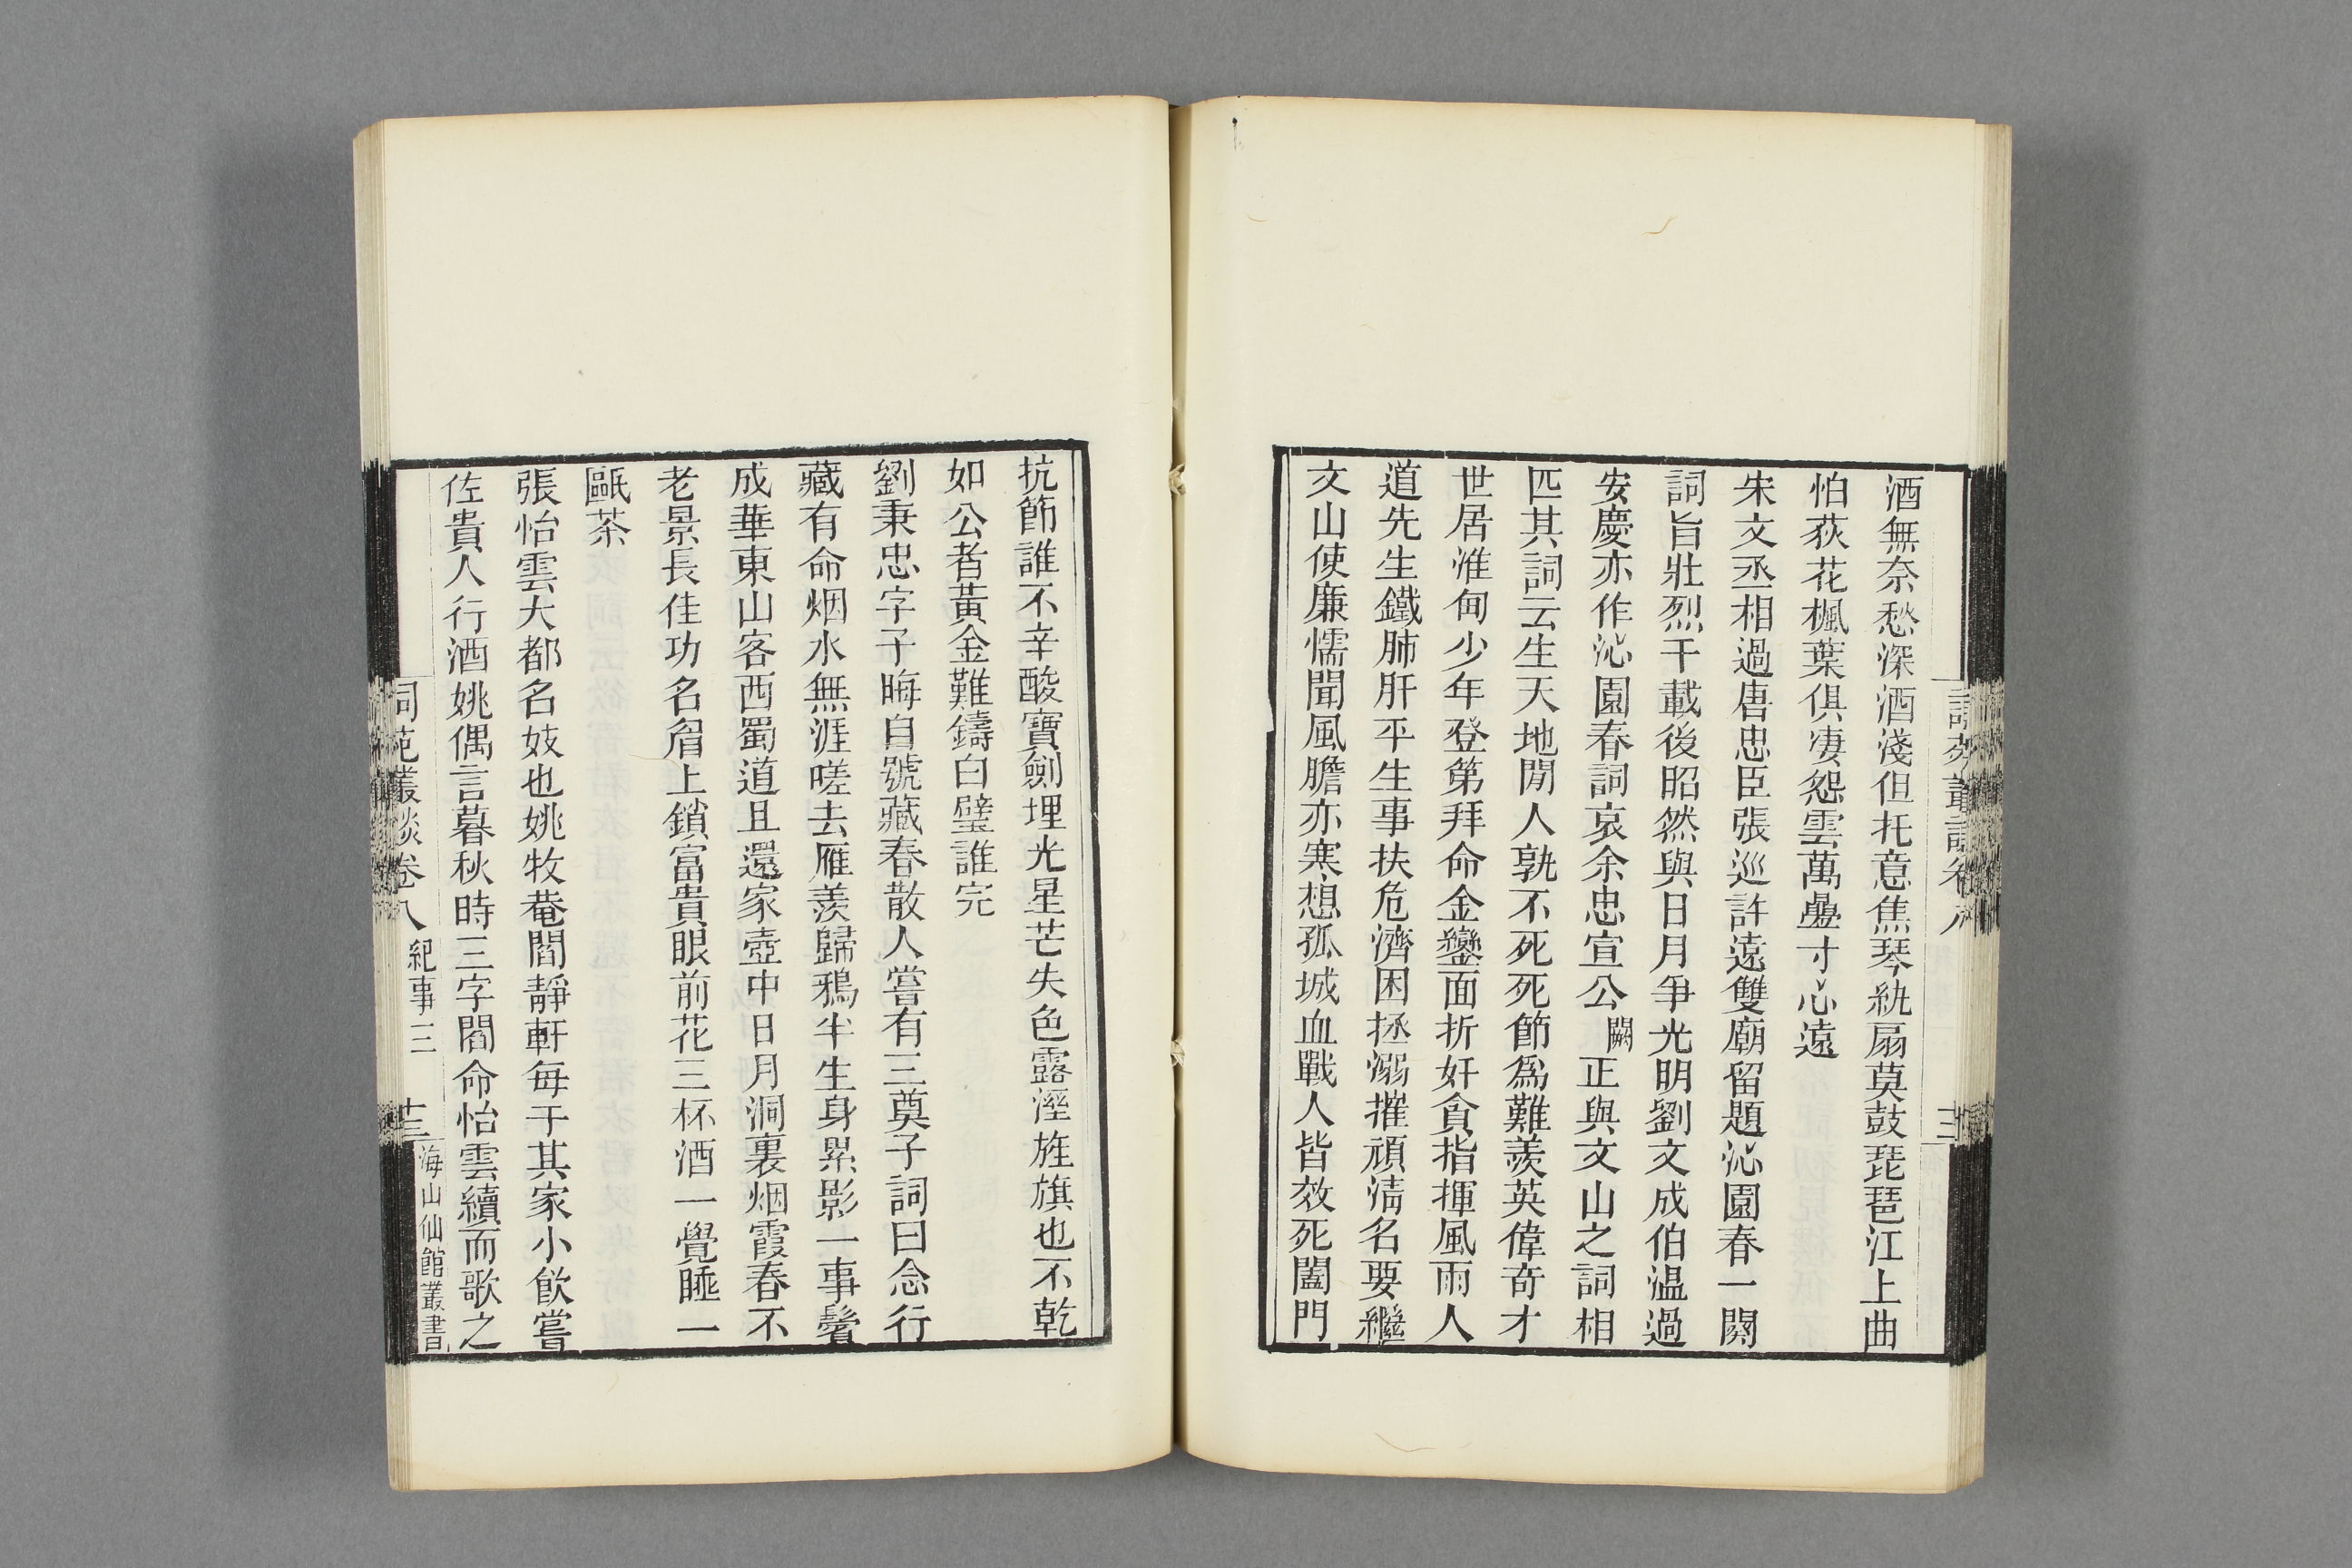 酒無奈愁深酒淺但托意焦琴紈扇莫鼓琵琶江上曲
怕荻花楓葉俱凄怨雲萬疊寸心遠
宋文丞相過唐忠臣張巡許遠雙廟留題沁園春一闋
詞旨壯烈千載後昭然與日月爭光明劉文成伯溫過
安慶亦作沁園春詞哀余忠宣公闕正與文山之詞相
匹其詞云生天地閒人孰不死死節爲難羨英偉奇才
世居淮甸少年登第拜命金鑾面折奸貪指揮風雨人
道先生鐵肺肝平生事扶危濟困拯溺摧頑淸名要繼
文山使廉懦聞風膽亦寒想孤城血戰人皆效死闔門
抗節誰不辛酸寶劍埋光星芒失色露溼旌旗也不乾
如公者黃金難鑄白璧誰完
劉秉忠字子晦自號藏春散人嘗有三奠子詞曰念行
藏有命烟水無涯嗟去雁羨歸鴉半生身累影一事鬢
成華東山客西蜀道且還家壺中日月洞裏烟霞春不
老景長佳功名眉上鎖富貴眼前花三杯酒一覺睡一
甌茶
張怡雲大都名妓也姚牧菴閻靜軒每于其家小飮嘗
佐貴人行酒姚偶言暮秋時三字閻命怡雲續而歌之
詞苑叢談卷八 紀事三 十三 海山仙館叢書